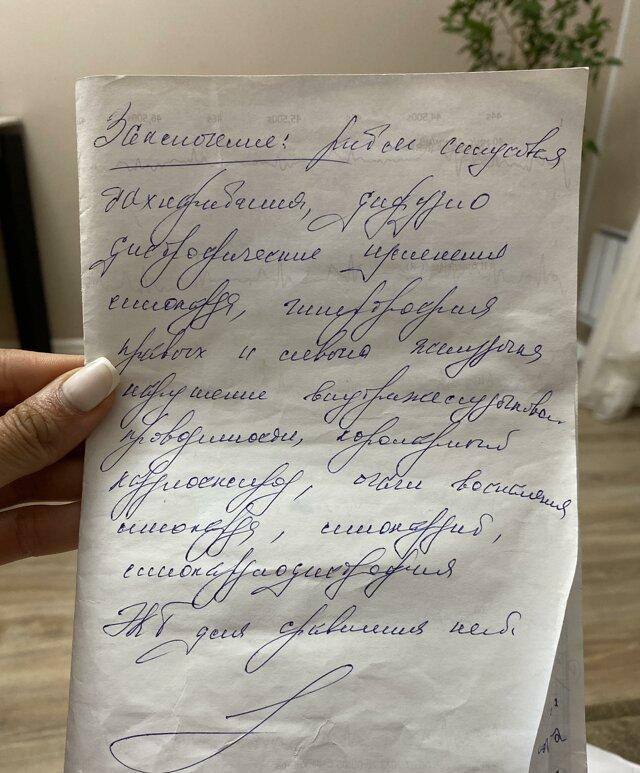 Заключение: ритм синусовая
тахикардия, диффузно
дистрофические изменения
миокарда, гипертрофия
правого и левого желудочка
нарушение внутрижелудочковой
проводимости, коронарный
кардиосклероз, очаги воспаления
миокарда, миокардит,
миокардиодистрофия
ЭКГ для сравнения нет.
46,500s 46s 45,500s 44,500s 44s